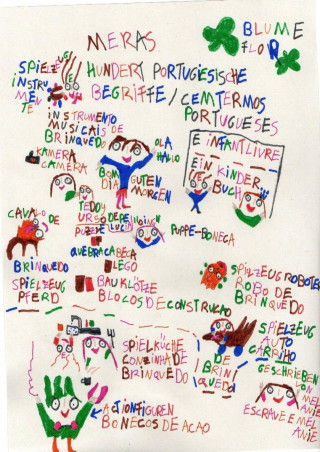 MERAS.
BLUME
FLOR
SPIELZEUG
INSTRU
MEN
TE
HUNDERT PORTUGIESISCHE
BEGRIFFE/CEMTERMOS
PORTUGUESES
INSTRUMENTO
MUSICAIS DE
BRINQUEDO
KAMERA
CAMERA
OLA
HALLO
BOM
DIA
GUTEN
MORGEN
E INFANTLIVRE
EIN KINDER
BUCH
TEDDY
URSO DE PE
LUCIA
PUZZLE
QUEBRACABECA
PUPPE-BONECA
CAVALO DE
BRINQUEDO
SPIELZEUG
PFERD
LEGO
BAUKLÖTZE
BLOCOS DE CONSTRUCAO
SPIELZEUG ROBOTER
ROBO DE
BRINQUEDO
SPIELKÜCHE
CONZINHA DE
BRINQUEDO
SPIELZEUG
AUTO
CARRIHO
DE
BRIN
QUEDO
GESCHRIEBEN
VON
MEL
ANIE
ESCRAVE E MEL
ANIE
ACTIONFIGUREN
BONECOS DE ACAO